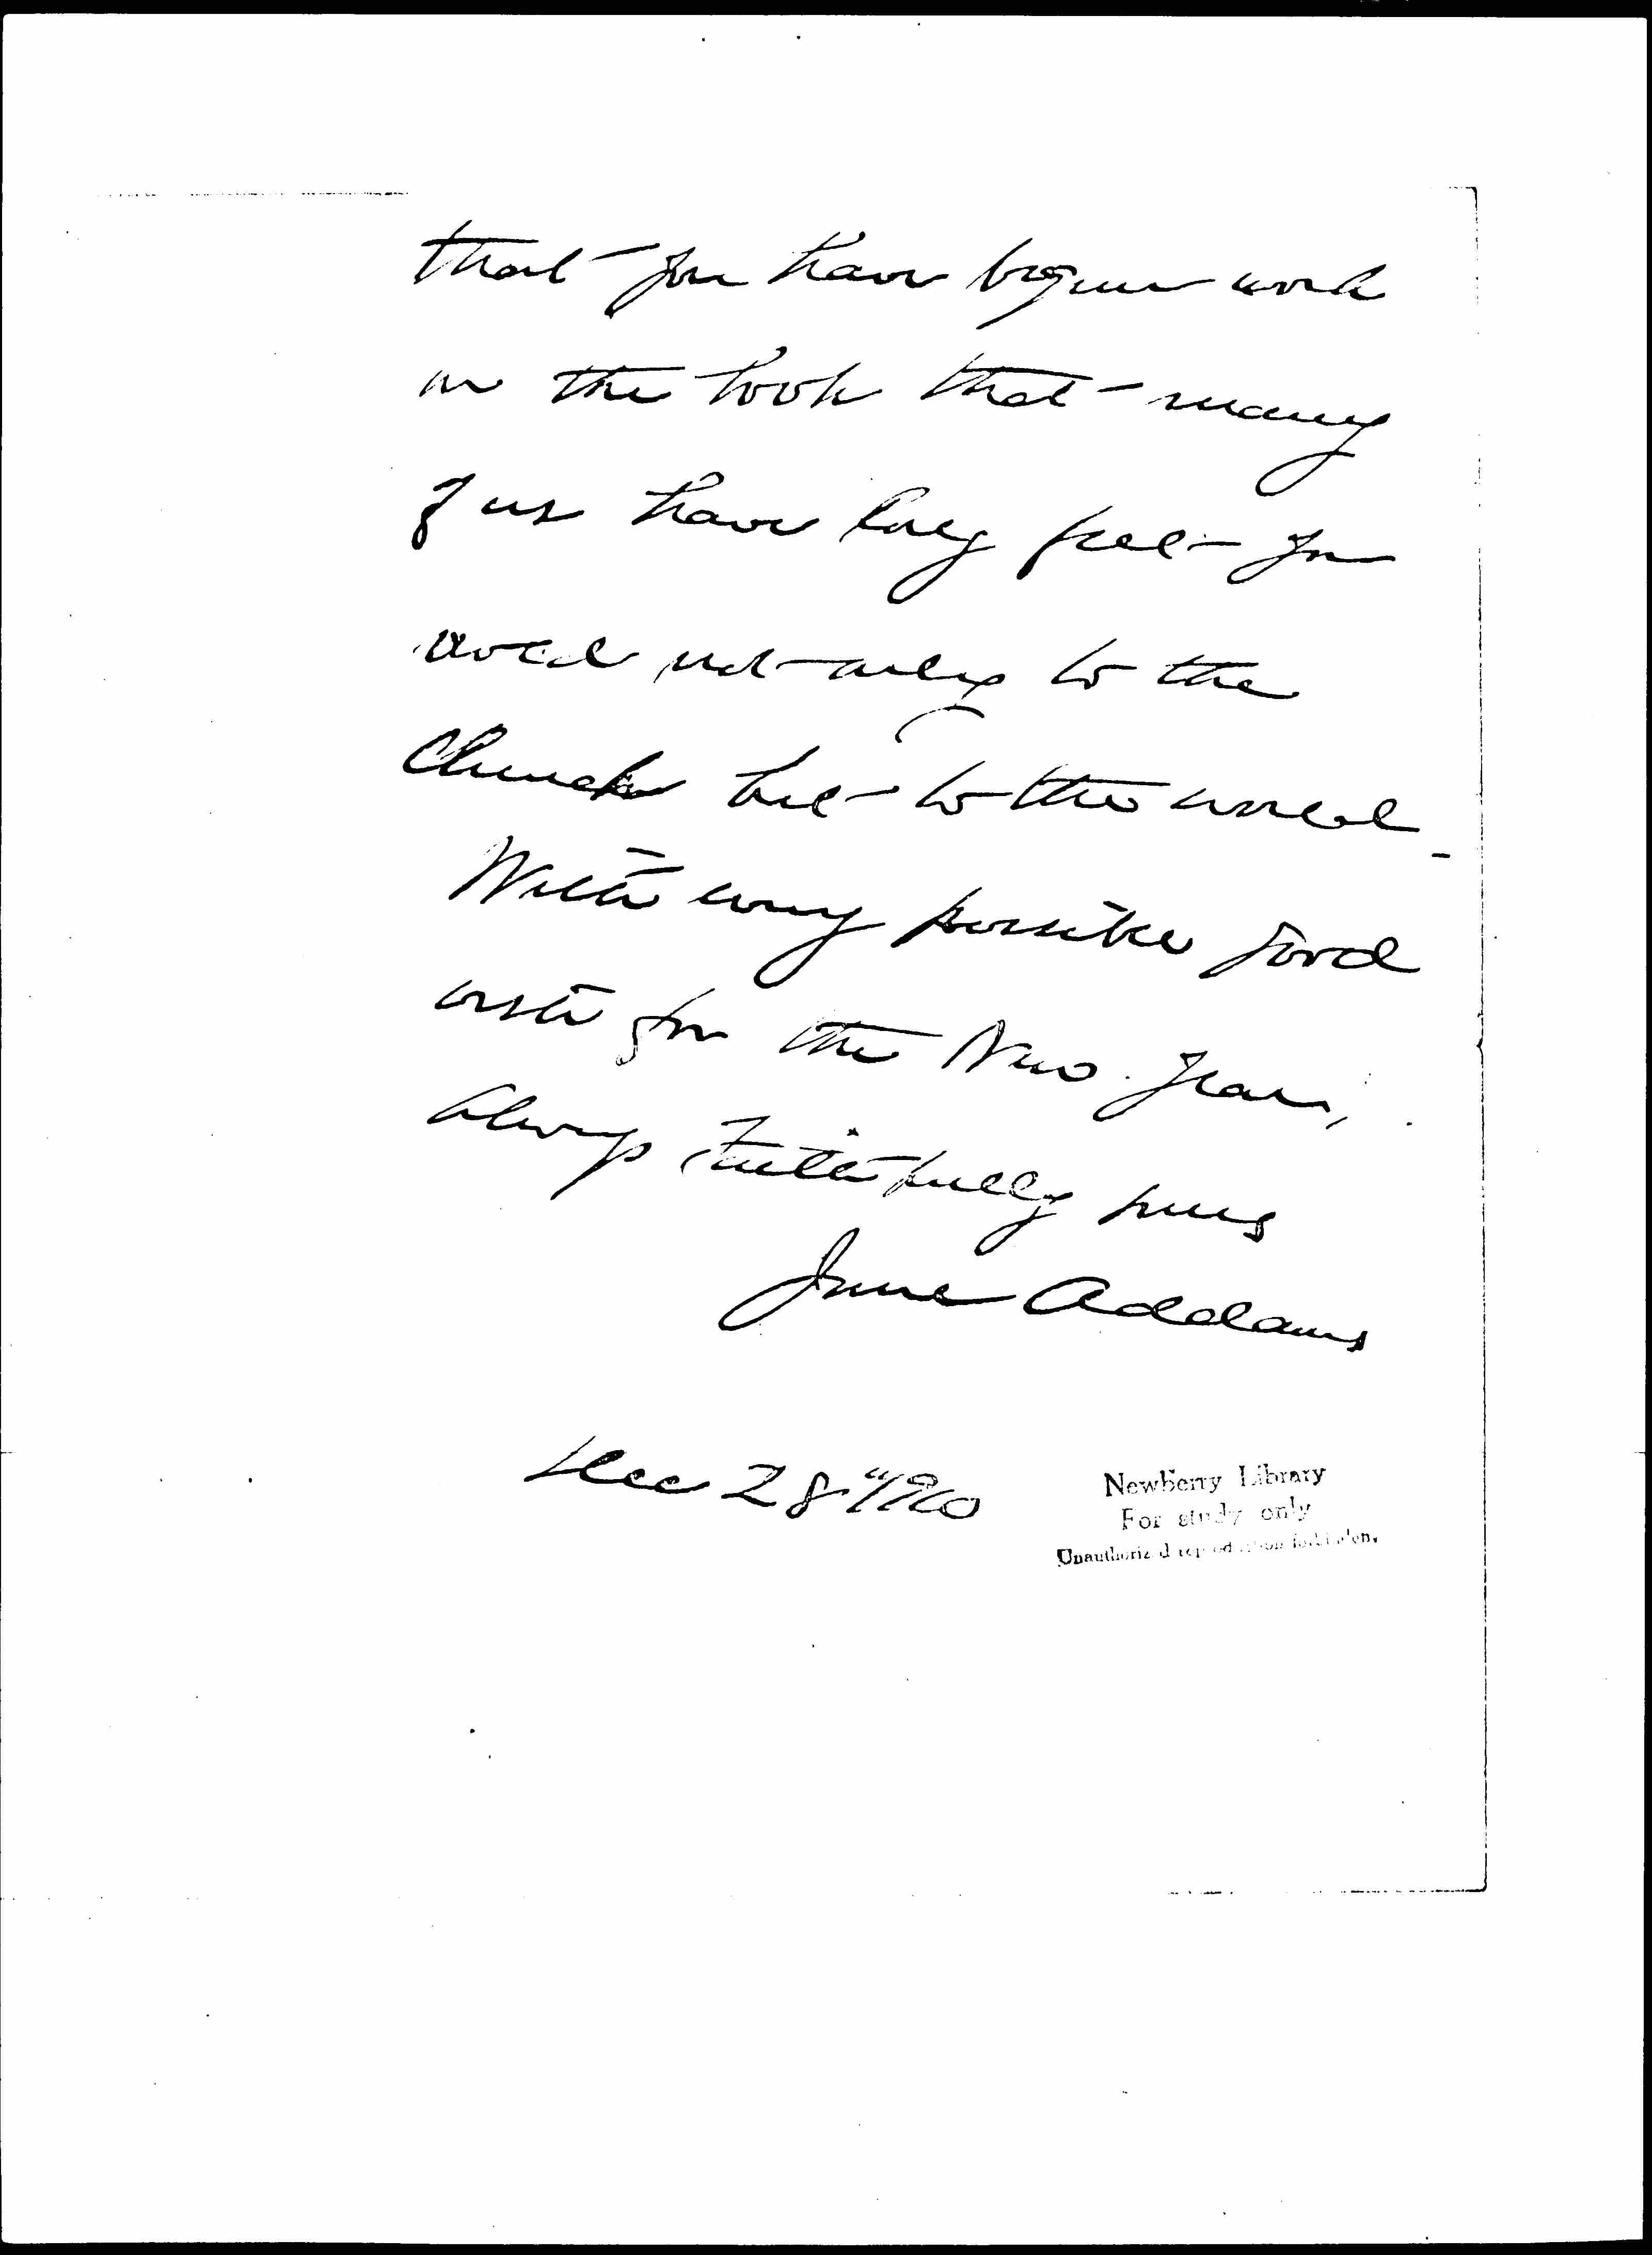 that you have begun work
on the book that many
of us have long felt you
owed not only to the
Church but to the world.
With every possible good
wish for the New Year,
always faithfully yours
Jane Addams
Dec 28"
Newberry Library
For study only
Unauthorized reproduction forbidden.